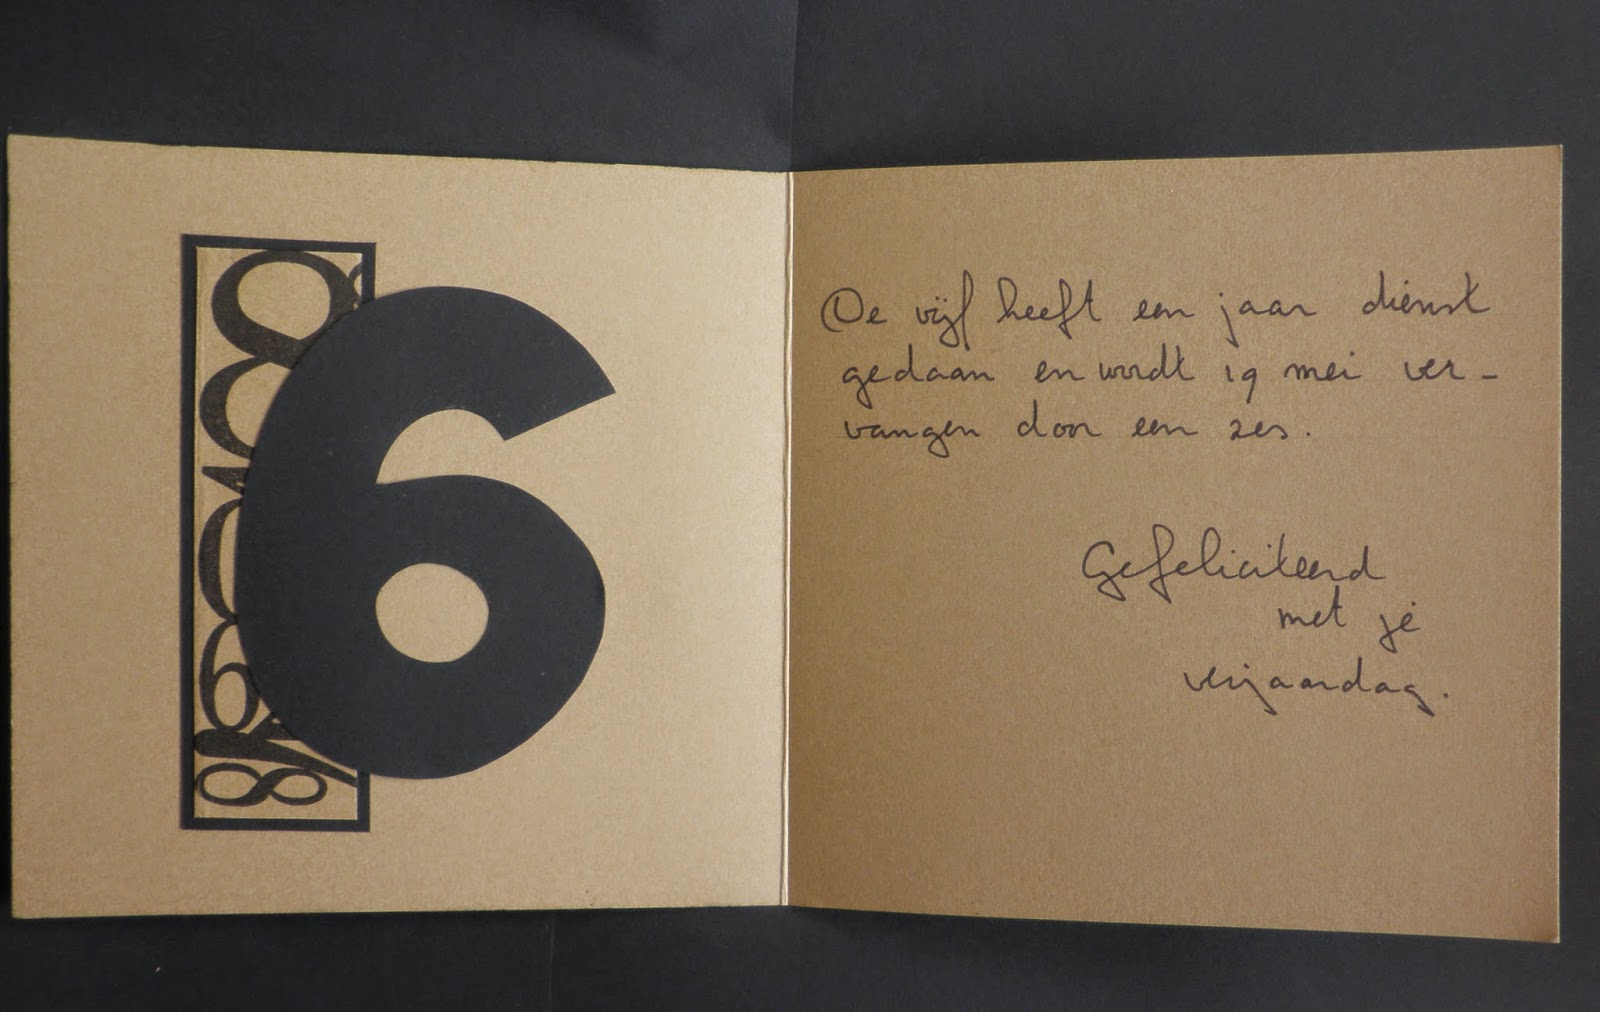 6
8
De vijf heeft een jaar dienst
gedaan en wordt 19 mei ver-
vangen door een zes.
Gefeliciteerd
met je
verjaardag.